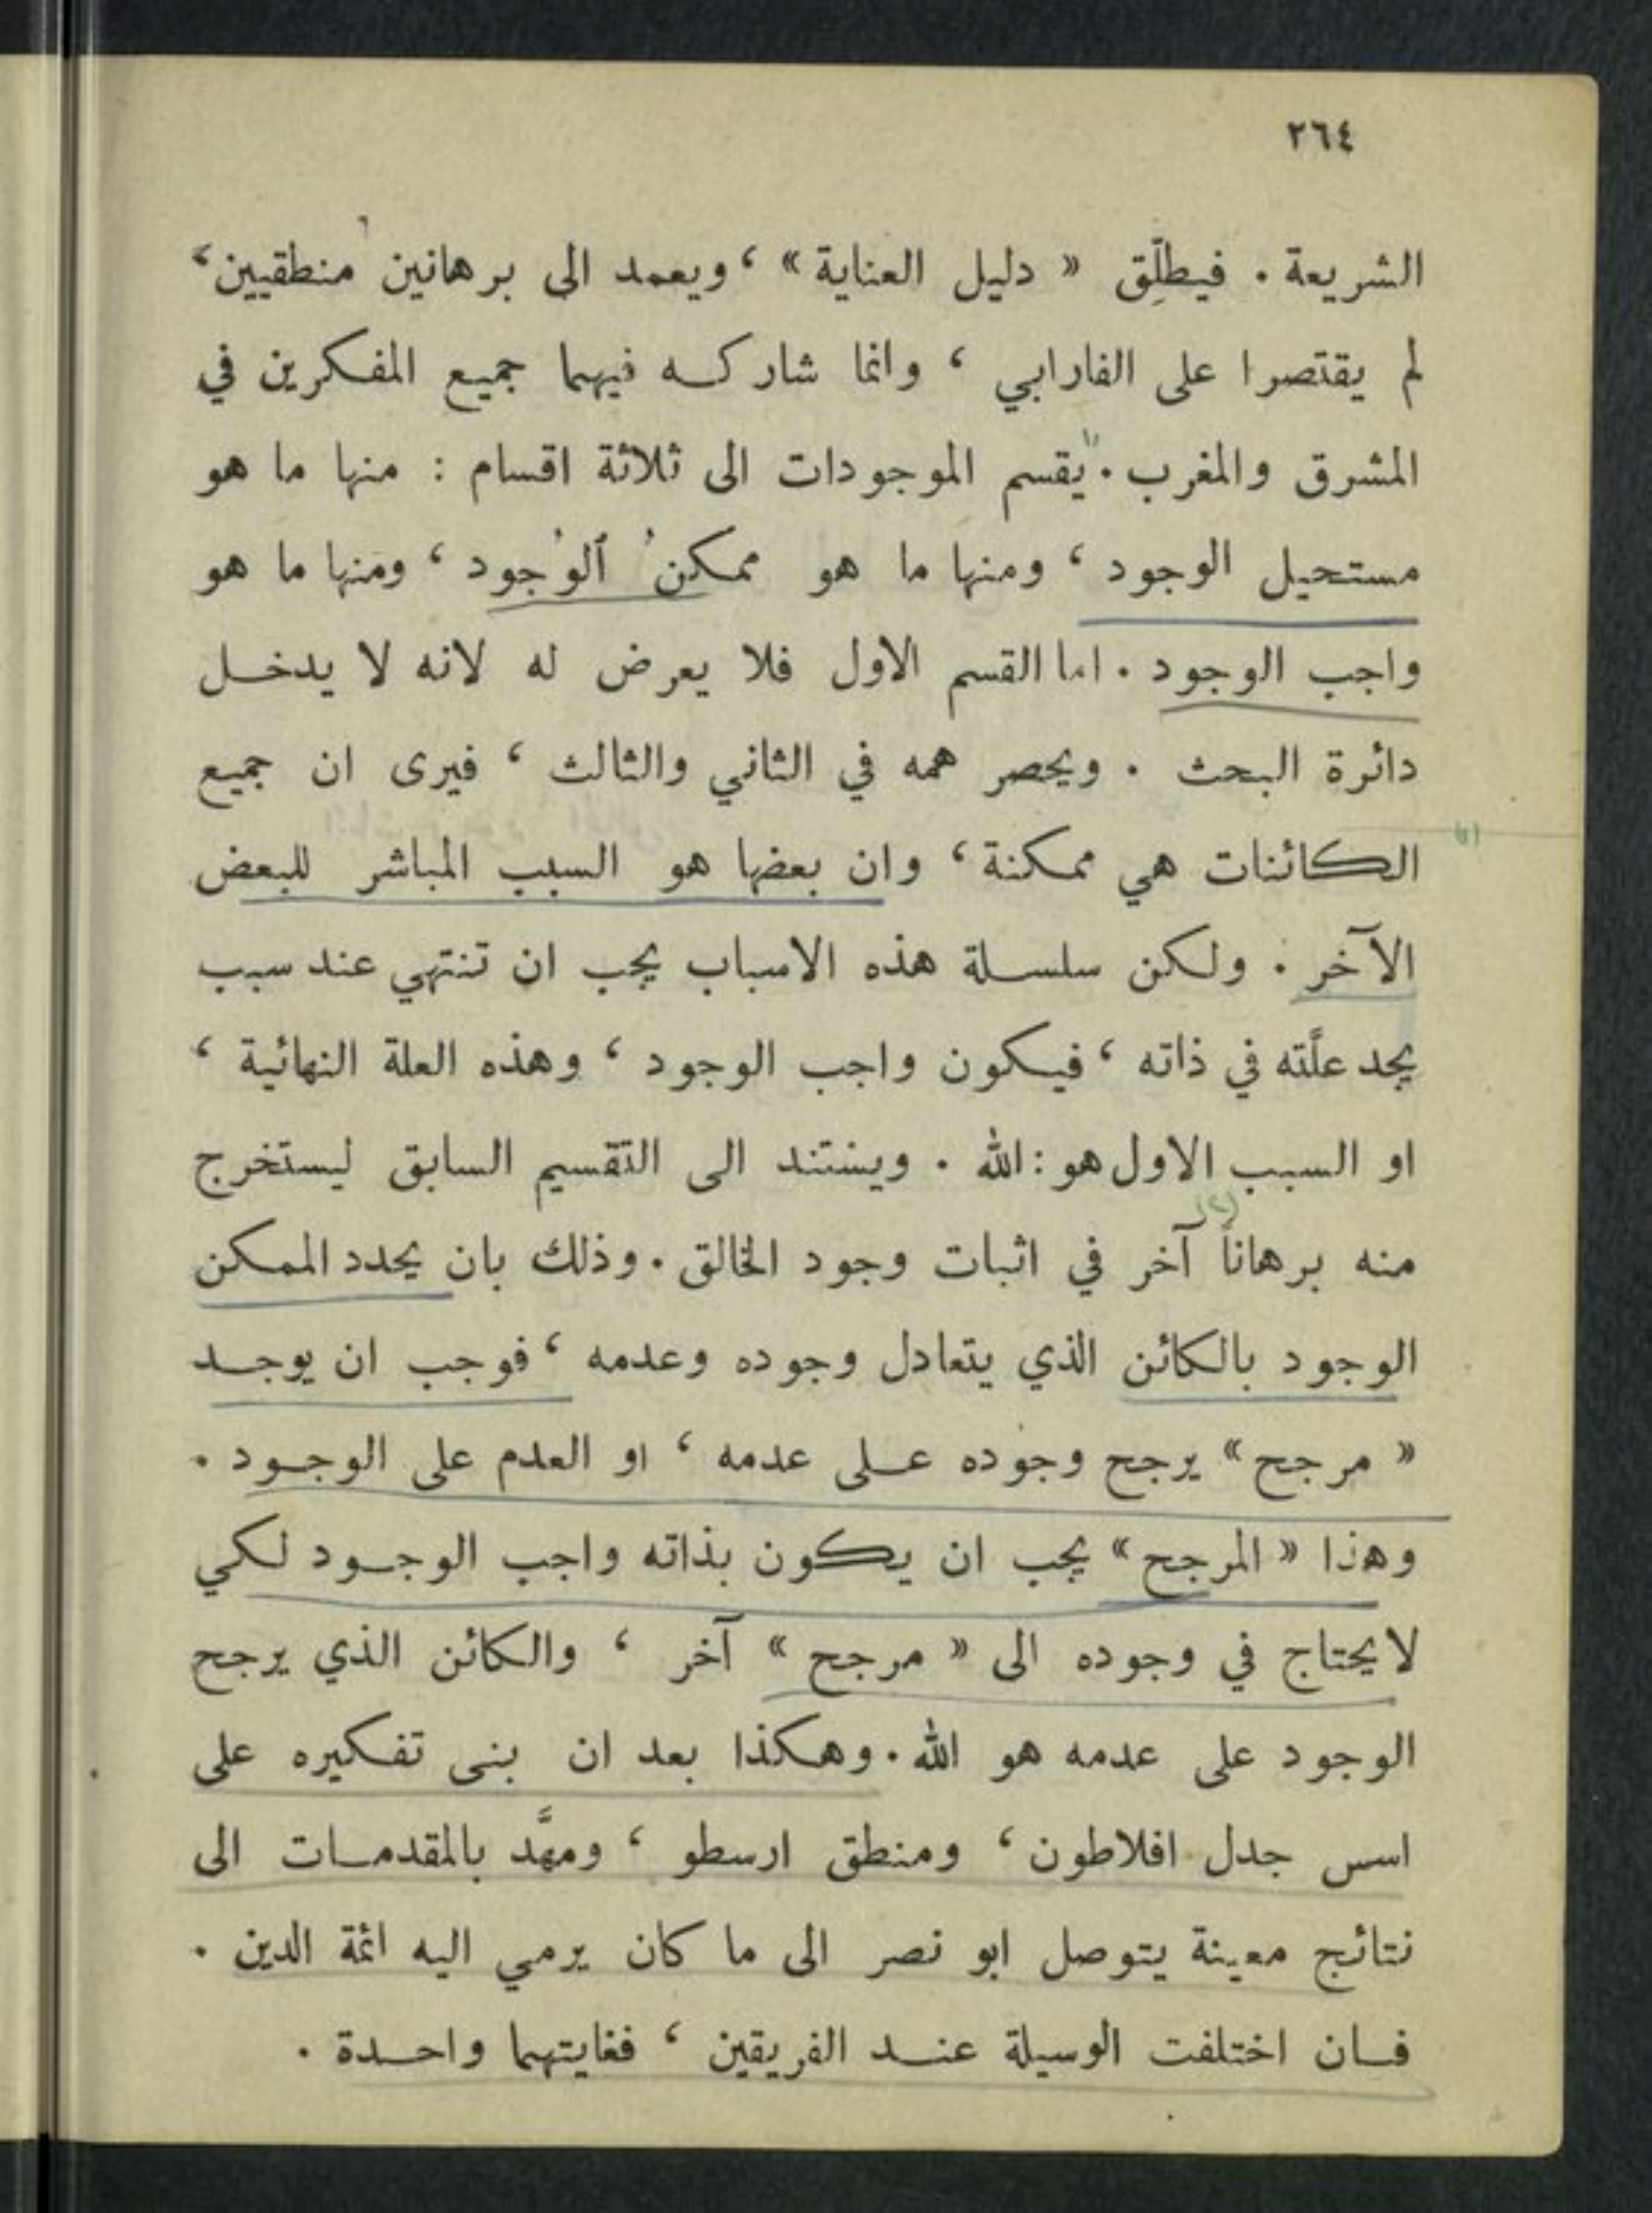 ٢٦٤
الشريعة . فيطلِّق « دليل العناية » ، ويعمد الى برهانين منطقيين ،
لم يقتصرا على الفارابي ، وانما شاركه فيهما جميع المفكرين في
المشرق والمغرب . يقسم الموجودات الى ثلاثة اقسام : منها ما هو
مستحيل الوجود ، ومنها ما هو ممكنُ ٱلوُجود ، ومنها ما هو
واجب الوجود . اما القسم الاول فلا يعرض له لانه لا يدخل
دائرة البحث . ويحصر همه في الثاني والثالث ، فيرى ان جميع
الكائنات هي ممكنة ، وان بعضها هو السبب المباشر للبعض
الآخر . ولكن سلسلة هذه الاسباب يجب ان تنتهي عند سبب
يجد علّته في ذاته ، فيكون واجب الوجود ، وهذه العلة النهائية ،
او السبب الاول هو : الله . ويستند الى التقسيم السابق ليستخرج
منه برهاناً آخر في اثبات وجود الخالق . وذلك بان يحدد الممكن
الوجود بالكائن الذي يتعادل وجوده وعدمه ، فوجب ان يوجد
« مرجح » يرجح وجوده على عدمه ، او العدم على الوجود .
وهذا « المرجح » يجب ان يكون بذاته واجب الوجود لكي
لا يحتاج في وجوده الى « مرجح » آخر ، والكائن الذي يرجح
الوجود على عدمه هو الله . وهكذا بعد ان بنى تفكيره على
اسس جدل افلاطون ، ومنطق ارسطو ، ومهَّد بالمقدمات الى
نتائج معينة يتوصل ابو نصر الى ما كان يرمي اليه ائمة الدين .
فان اختلفت الوسيلة عند الفريقين ، فغايتهما واحدة .